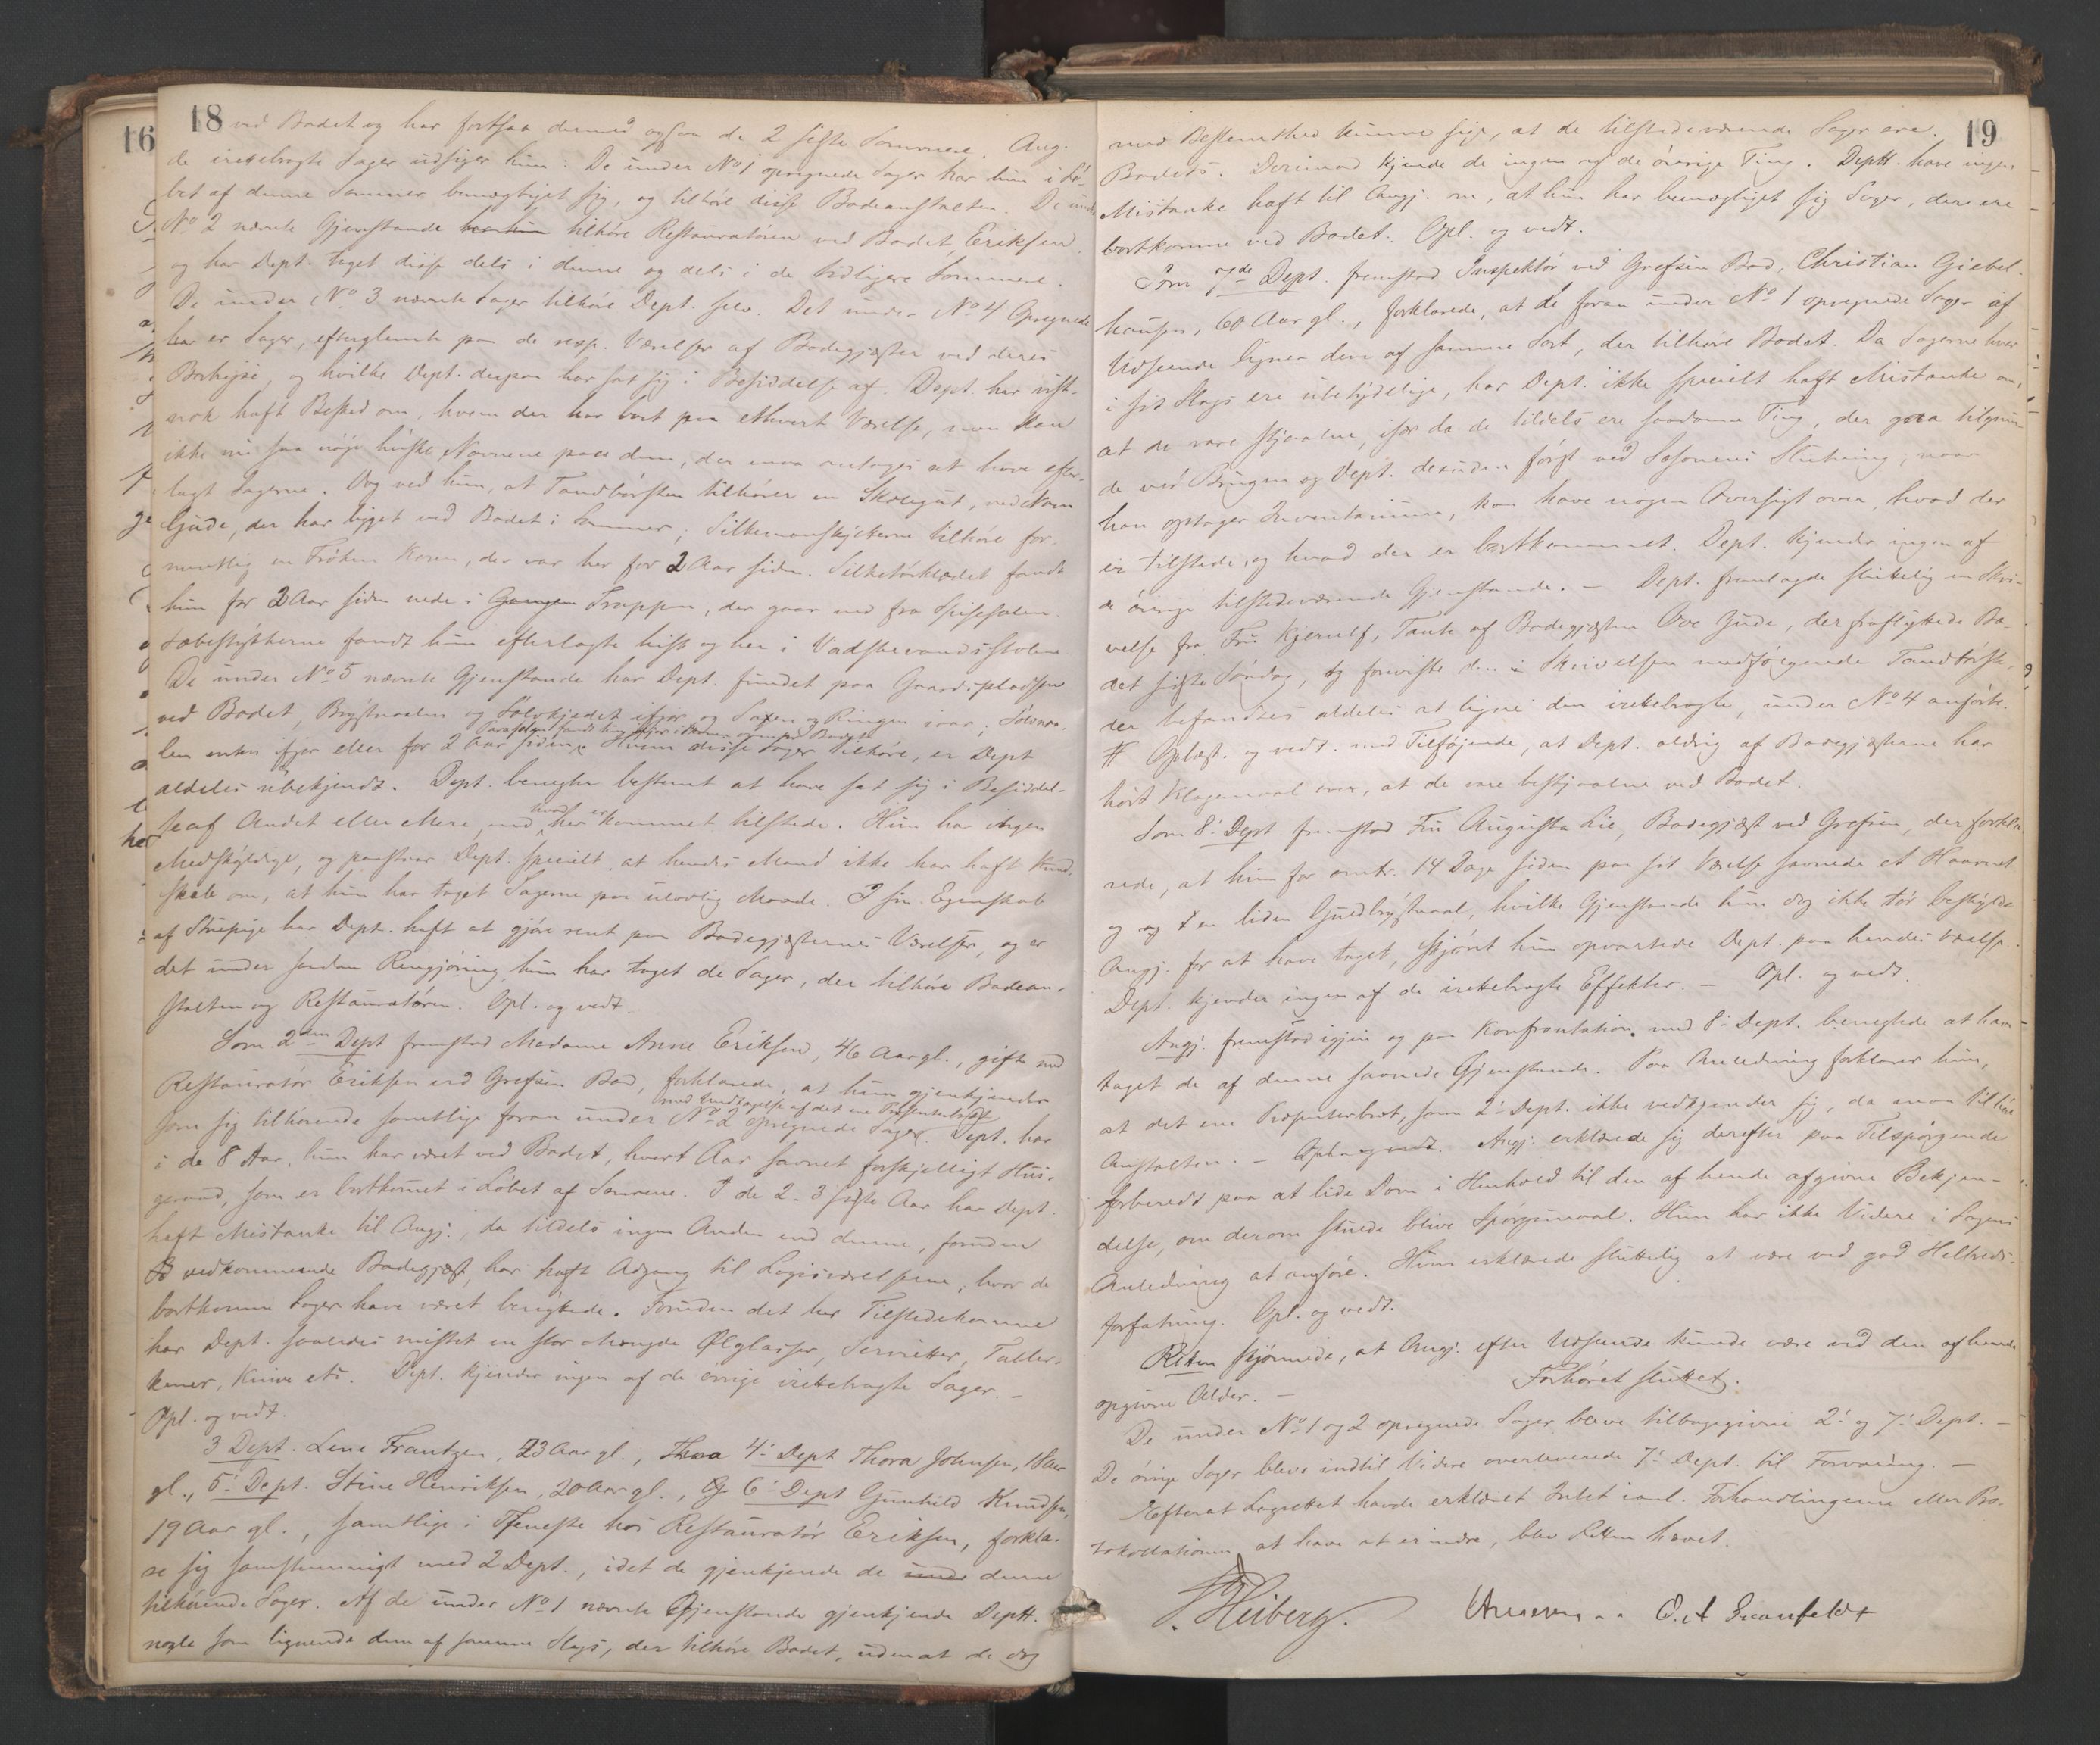 18
ved Badet og har fortsat dermed ogsaa de 2 sidste Sommere. Ang.
de irettelagte Sager udsiger hun: De under No 1 opregnede Sager har hun i Lø-
bet af denne Sommer bemægtiget sig, og tilhøre disse Badeanstalten. De under
No 2 nævnte Gjenstande tilhøre Restauratøren ved Badet, Eriksen,
og har Dept. taget disse dels i denne og dels i de tidligere Sommere.
De under No 3 nævnte Sager tilhøre Dept. selv. Det under No 4 Opregnede
har er Sager, efterglemte paa de resp. Værelser af Badegjæster ved deres
Bortrejse, og hvilke Dept. derpaa har sat sig i Besiddelse af. Dept. har vist-
nok haft Besked om, hvem der har boet paa ethvert Værelse, men kan
ikke nu saa nøje huske Navnene paa dem, der maa antages at have efter-
lagt Sagerne. Dog ved hun, at Tandbørsten tilhører en Skolegut, ved Navn
Gude, der har ligget ved Badet i Sommer; Silkemanskjetterne tilhøre for-
mentlig en Frøken Koren, der var her for 2 Aar siden. Silketørklædet fandt
hun for 2 Aar siden nede i Gangen Trappen, der gaar ned fra Spisesalen.
Sæbestykkerne fandt hun efterlagte hist og her i Vadskevandsstolene.
De under No 5 nævnte Gjenstande har Dept. fundet paa Gaardspladsen
ved Badet, Brystnaalen og Sølvkjedet ifjor og Saxen og Ringen iaar, Sølvnaa-
Parasolen fandt hun ifjor i Skoven ovenfor Badet
len enten ifjor eller for 2 Aar siden. Hvem disse Sager tilhøre, er Dept
aldeles ubekjendt. Dept. benegter bestemt at have sat sig i Besiddel-
hvad er
se af Andet eller Mere, end her kommet tilstede. Hun har ingen
Medskyldige, og paastaar Dept. specielt, at hendes Mand ikke har haft Kund-
skab om, at hun har taget Sagerne paa ulovlig Maade. I sin Egenskab
af Stuepige har Dept. haft at gjøre rent paa Badegjæsternes Værelser, og er
det under saadan Rengjøring hun har taget de Sager, der tilhøre Badean-
stalten og Restauratøren. Opl. og vedt.
Som 2den Dept fremstod Madame Anne Eriksen, 46 Aar gl., gift med
Restauratør Eriksen ved Grefsen Bad, forklarede, at hun gjenkjender
med Undtagelse af det ene Præsenterbræt
som sig tilhørende samtlige foran under No 2 opregnede Sager. Dept. har
i de 8 Aar, hun har været ved Badet, hvert Aar savnet forskjelligt Hus-
geraad, som er bortkommet i Løbet af Somrene. I de 2-3 sidste Aar har Dept.
haft Mistanke til Angj., da tildels ingen Anden end denne, foruden
vedkommende Badegjæst, har haft Adgang til Logisværelserne, hvor de
bortkomne Sager have været benyttede. Foruden det her Tilstedekomne
har Dept. saaledes mistet en stor Mængde Ølglasser, Servietter, Taller-
kener, Knive etc. Dept. kjender ingen af de øvrige irettelagte Sager. –
Opl. og vedt.
3 Dept. Lene Frantzen, 23 Aar gl., Thora 4' Dept Thora Johnsen, 18 Aar
gl., 5' Dept. Stine Henriksen, 20 Aar gl., og 6' Dept Gunhild Knudsen,
19 Aar gl., samtlige i Tjeneste hos Restauratør Eriksen, forkla-
re sig samstemmigt med 2 Dept., idet de gjenkjende de denne
tilhørende Sager. Af de under No 1 nævnte Gjenstande gjenkjende Deptt.
nogle som lignende dem af samme Slags, der tilhøre Badet, uden at de dog
19
med Bestemthed kunne sige, at de tilstedeværende Sager ere
Badets. Derimod kjende de ingen af de øvrige Ting. Deptt. have ingen
Mistanke haft til Angj. om, at hun har bemægtiget sig Sager, der ere
bortkomne ved Badet. Opl. og vedt.
Som 7de Dept. fremstod Inspektør ved Grefsen Bad, Christian Giebel-
hausen, 60 Aar gl., forklarede, at de foran under No 1 opregnede Sager af
Udseende ligner dem af samme Sort, der tilhøre Badet. Da Sagerne hver
i sit Slags ere ubetydelige, har Dept. ikke specielt haft Mistanke om,
at de vare stjaalne, især da de tildels ere saadanne Ting, der gaa tilgrun-
de ved Brugen og Dept. desuden først ved Sæsonens Slutning, naar
han optager Inventarium, kan have nogen Oversigt over, hvad der
er tilstede, og hvad der er bortkommet. Dept. kjender ingen af
de øvrige tilstedeværende Gjenstande. – Dept. fremlagde sluttelig en Skri-
velse fra Fru Kjerulf, Tante af Badegjæsten Ove Gude, der fraflyttede Ba-
det sidste Søndag, og foreviste den i Skrivelsen medfølgende Tandbørste,
der befandtes aldeles at ligne den irettelagte, under No 4 anførte.
Oplæst. og vedt. med Tilføjende, at Dept. aldrig af Badegjæsterne har
hørt Klagemaal over, at de vare bestjaalne ved Badet.
Som 8' Dept fremstod Fru Augusta Lie, Badegjæst ved Grefsen, der forkla-
rede, at hun for omtr. 14 Dage siden paa sit Værelse savnede et Haarnet
og en liden Guldbrystnaal, hvilke Gjenstande hun dog ikke tør beskylde
Angj. for at have taget, skjønt hun opvartede Dept. paa hendes Værelse.
Dept. kjender ingen af de irettelagte Effekter. – Opl. og vedt.
Angj. fremstod igjen og paa Konfrontation med 8' Dept. benegtede at have
taget de af denne savnede Gjenstande. Paa Anledning forklarer hun,
at det ene Præsenterbræt, som 2' Dept. ikke vedkjender sig, da maa tilhøre
Anstalten. – Opl. og vedt. Angj. erklærede sig derefter paa Tilspørgende
forberedt paa at lide Dom i Henhold til den af hende afgivne Bekjen-
delse, om derom skulde blive Spørgsmaal. Hun har ikke Videre i Sagens
Anledning at anføre. Hun erklærede sluttelig at være ved god Helbreds-
forfatning. Opl. og vedt.
Retten skjønnede, at Angj. efter Udseende kunde være ved den af hende
opgivne Alder. –
Forhøret sluttet.
De under No 1 og 2 opregnede Sager bleve tilbagegivne 2' og 7' Dept. –
De øvrige Sager bleve indtil Videre overleverede 7' Dept. til Forvaring. –
Efterat Lagrettet havde erklæret Intet imod Forhandlingerne eller Pro-
tokollationen at have at erindre, blev Retten hævet.
Heiberg. O. A Granfeldt